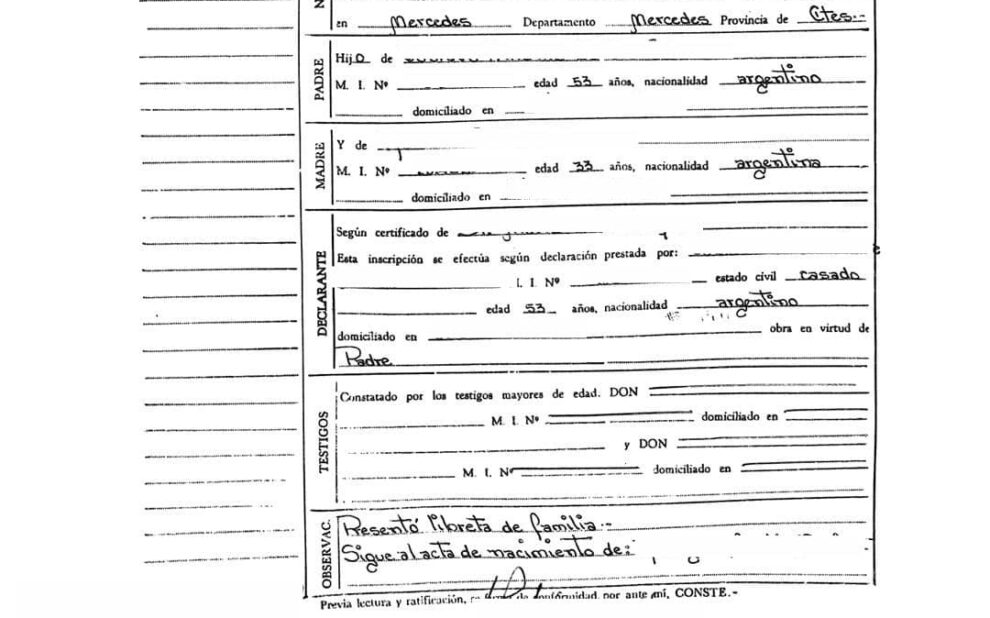 N
en Mercedes Departamento Mercedes Provincia de Ctes.-
PADRE
Hijo de
M. I. Nº edad 53 años, nacionalidad argentino
domiciliado en
MADRE
Y de
M. I. Nº edad 33 años, nacionalidad argentina
domiciliado en
DECLARANTE
Según certificado de
Esta inscripción se efectúa según declaración prestada por:
I. I. Nº estado civil casado
edad 53 años, nacionalidad argentino
domiciliado en obra en virtud de
Padre
TESTIGOS
Constatado por los testigos mayores de edad. DON
M. I. Nº domiciliado en
y DON
M. I. Nº domiciliado en
OBSERVAC.
Presentó libreta de familia.-
Sigue al acta de nacimiento de:
Previa lectura y ratificación, de conformidad, por ante mí, CONSTE.-